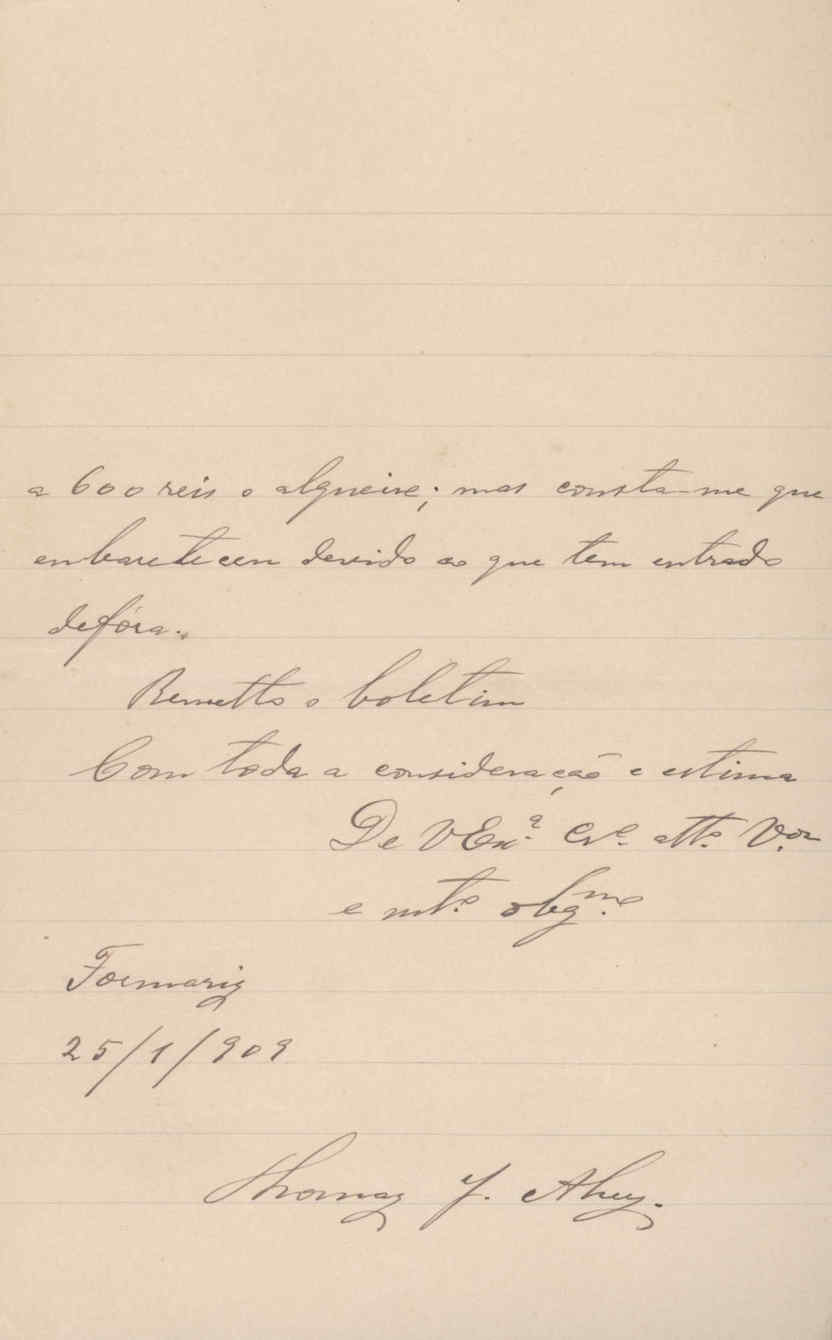 a 600 reis o alqueire; mas consta-me que
embaratecen devido ao que tem entrado
defóra.
Remetto o boletim
Com toda a consideração e estima
De V Ex.ª Cr.º att.º V.or
e mt.º obg.mo
Formariz
25/1/909
Thomaz J.